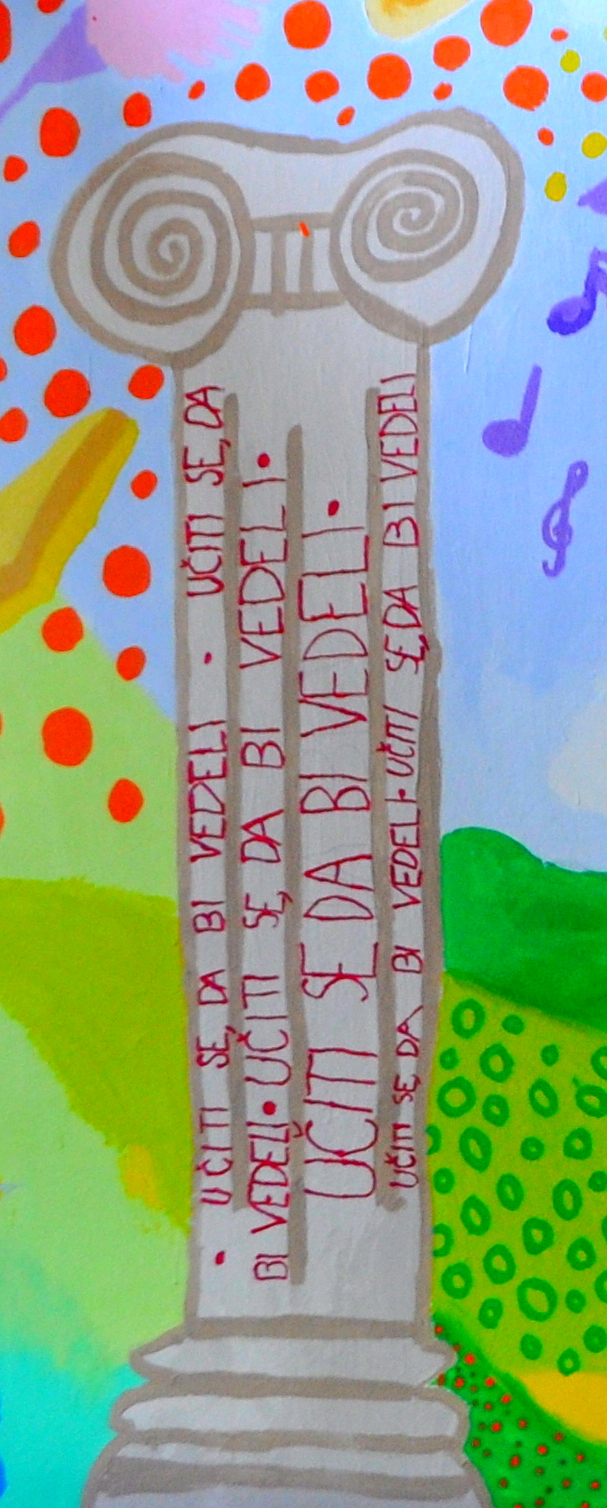 • UČITI SE, DA BI VEDELI • UČITI SE, DA
BI VEDELI • UČITI SE, DA BI VEDELI •
UČITI SE DA BI VEDELI •
UČITI SE, DA BI VEDELI • UČITI SE, DA BI VEDELI